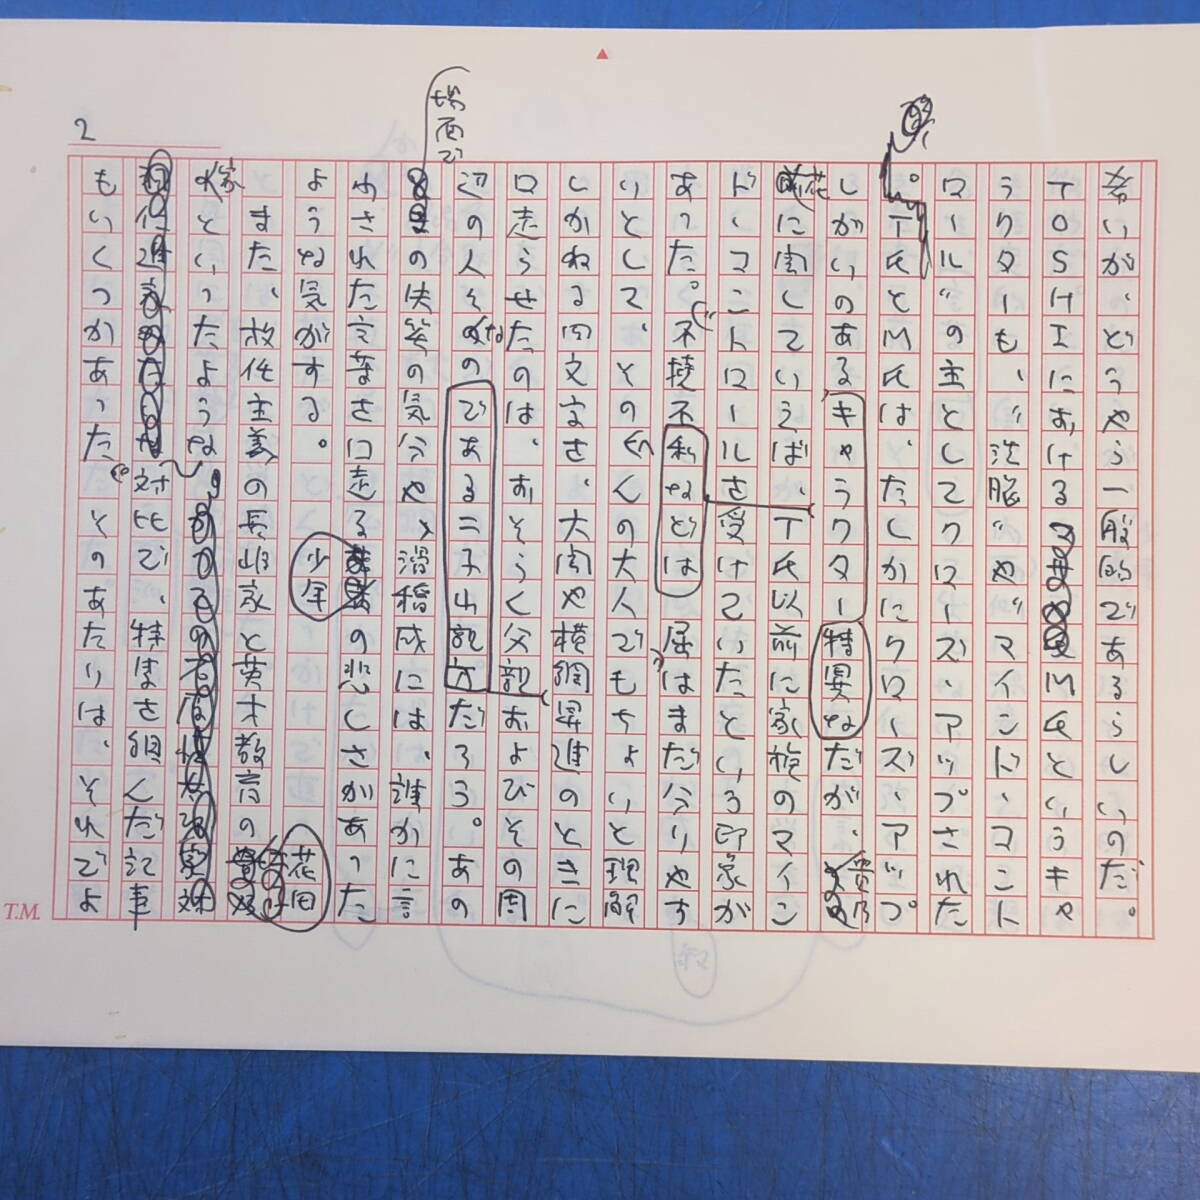 2
奇いが、どうやら一般的であるらしいのだ。
TOSHIにおけるM氏というキャ
ラクターも、〝洗脳〟や〝マインド、コント
ロール〟の主としてクローズ、アップされた
。T氏とM氏は、たしかにクローズ、アップ
しがいのあるキャラクター特異なだが、貴乃
花に関していえば、T氏以前に家族のマイン
ド、コントロールを受けていたという印象が
あった。不撓不
私などは
屈はまだ分りやす
いとして、その
くんの大人でもちょいと理解
しかねる四文字を、大関や横綱昇進のときに
口走らせたのは、おそらく父親およびその周
辺の人そのである二子山親方だろう。あの
場面で
の失笑の気分や、滑稽感には、誰かに言
わされた言葉を口走る少年の悲しさがあった
ような気がする。
また、放任主義の長嶋家と英才教育の花田
家といったような
対比で、特集を組んだ記事
もいくつかあったが、そのあたりは、それでよ
T.M.